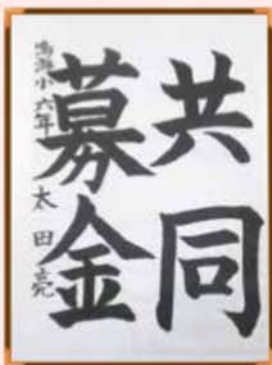 共同
募金
鳴瀬小 六年 太田亮